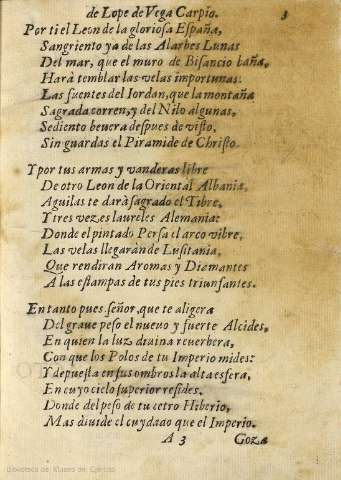 de Lope de Vega Carpio. 3
Por ti el Leon de la gloriosa España,
Sangriento ya de las Alarbes Lunas
Del mar, que el muro de Bisancio baña,
Harà temblar las velas importunas:
Las fuentes del Iordan, que la montaña
Sagrada corren, y del Nilo algunas,
Sediento beuera despues de visto,
Sin guardas el Piramide de Christo.
Y por tus armas y vanderas libre
De otro Leon de la Oriental Albania,
Aguilas te darà sagrado el Tibre,
Y tres vezes laureles Alemania:
Donde el pintado Persa el arco vibre,
Las velas llegaràn de Lusitania,
Que rendiran Aromas y Diamantes
A las estampas de tus pies triunfantes.
En tanto pues señor, que te aligera
Del graue peso el nueuo y fuerte Alcides,
En quien la luz diuina reuerbera,
Con que los Polos de tu Imperio mides:
Y depuesta en sus ombros la alta esfera,
En cuyo cielo superior resides.
Donde del peso de tu cetro Hiberio,
Mas diuide el cuydado que el Imperio.
A 3 Goza
Biblioteca del Museo del Ejército